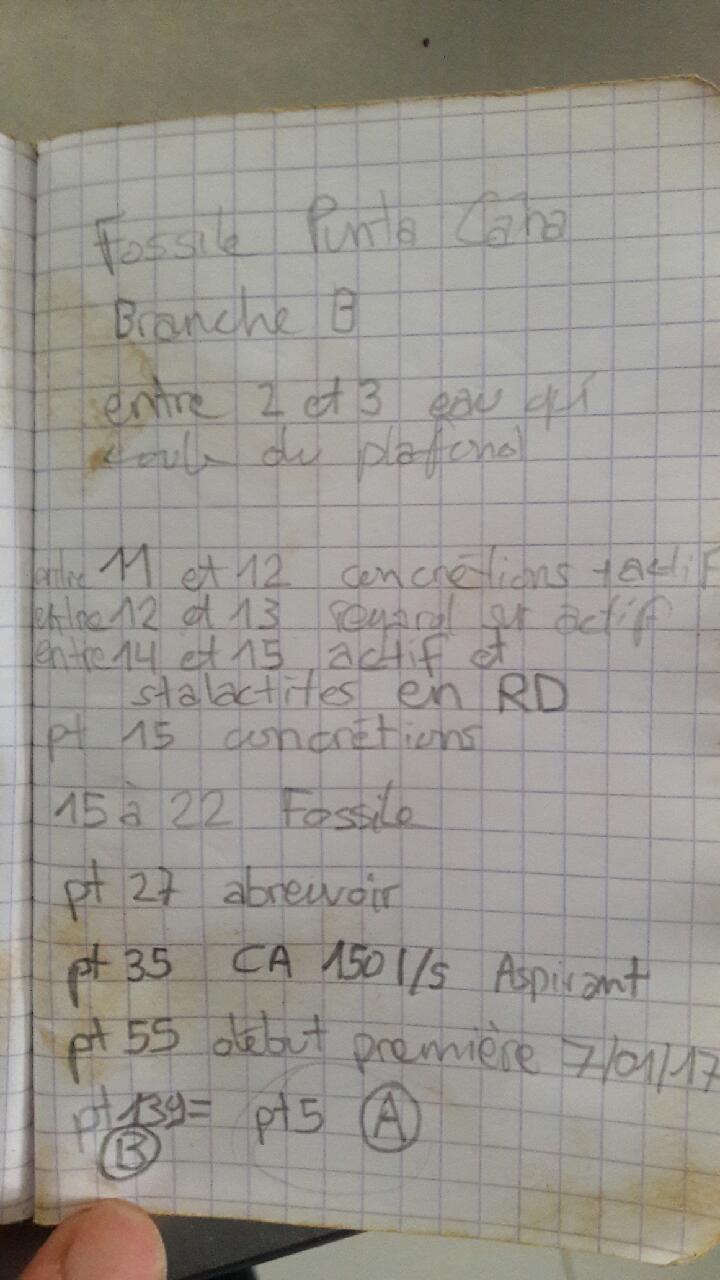 Fossile Punta Cana
Branche B
entre 2 et 3 eau qui
coule du plafond
entre 11 et 12 concrétions + actif
entre 12 et 13 regard sur actif
entre 14 et 15 actif et
stalactites en RD
pt 15 concrétions
15 à 22 Fossile
pt 27 abreuvoir
pt 35 CA 150 l/s Aspirant
pt 55 début première 7/01/17
pt 139 = pt 5 A
B